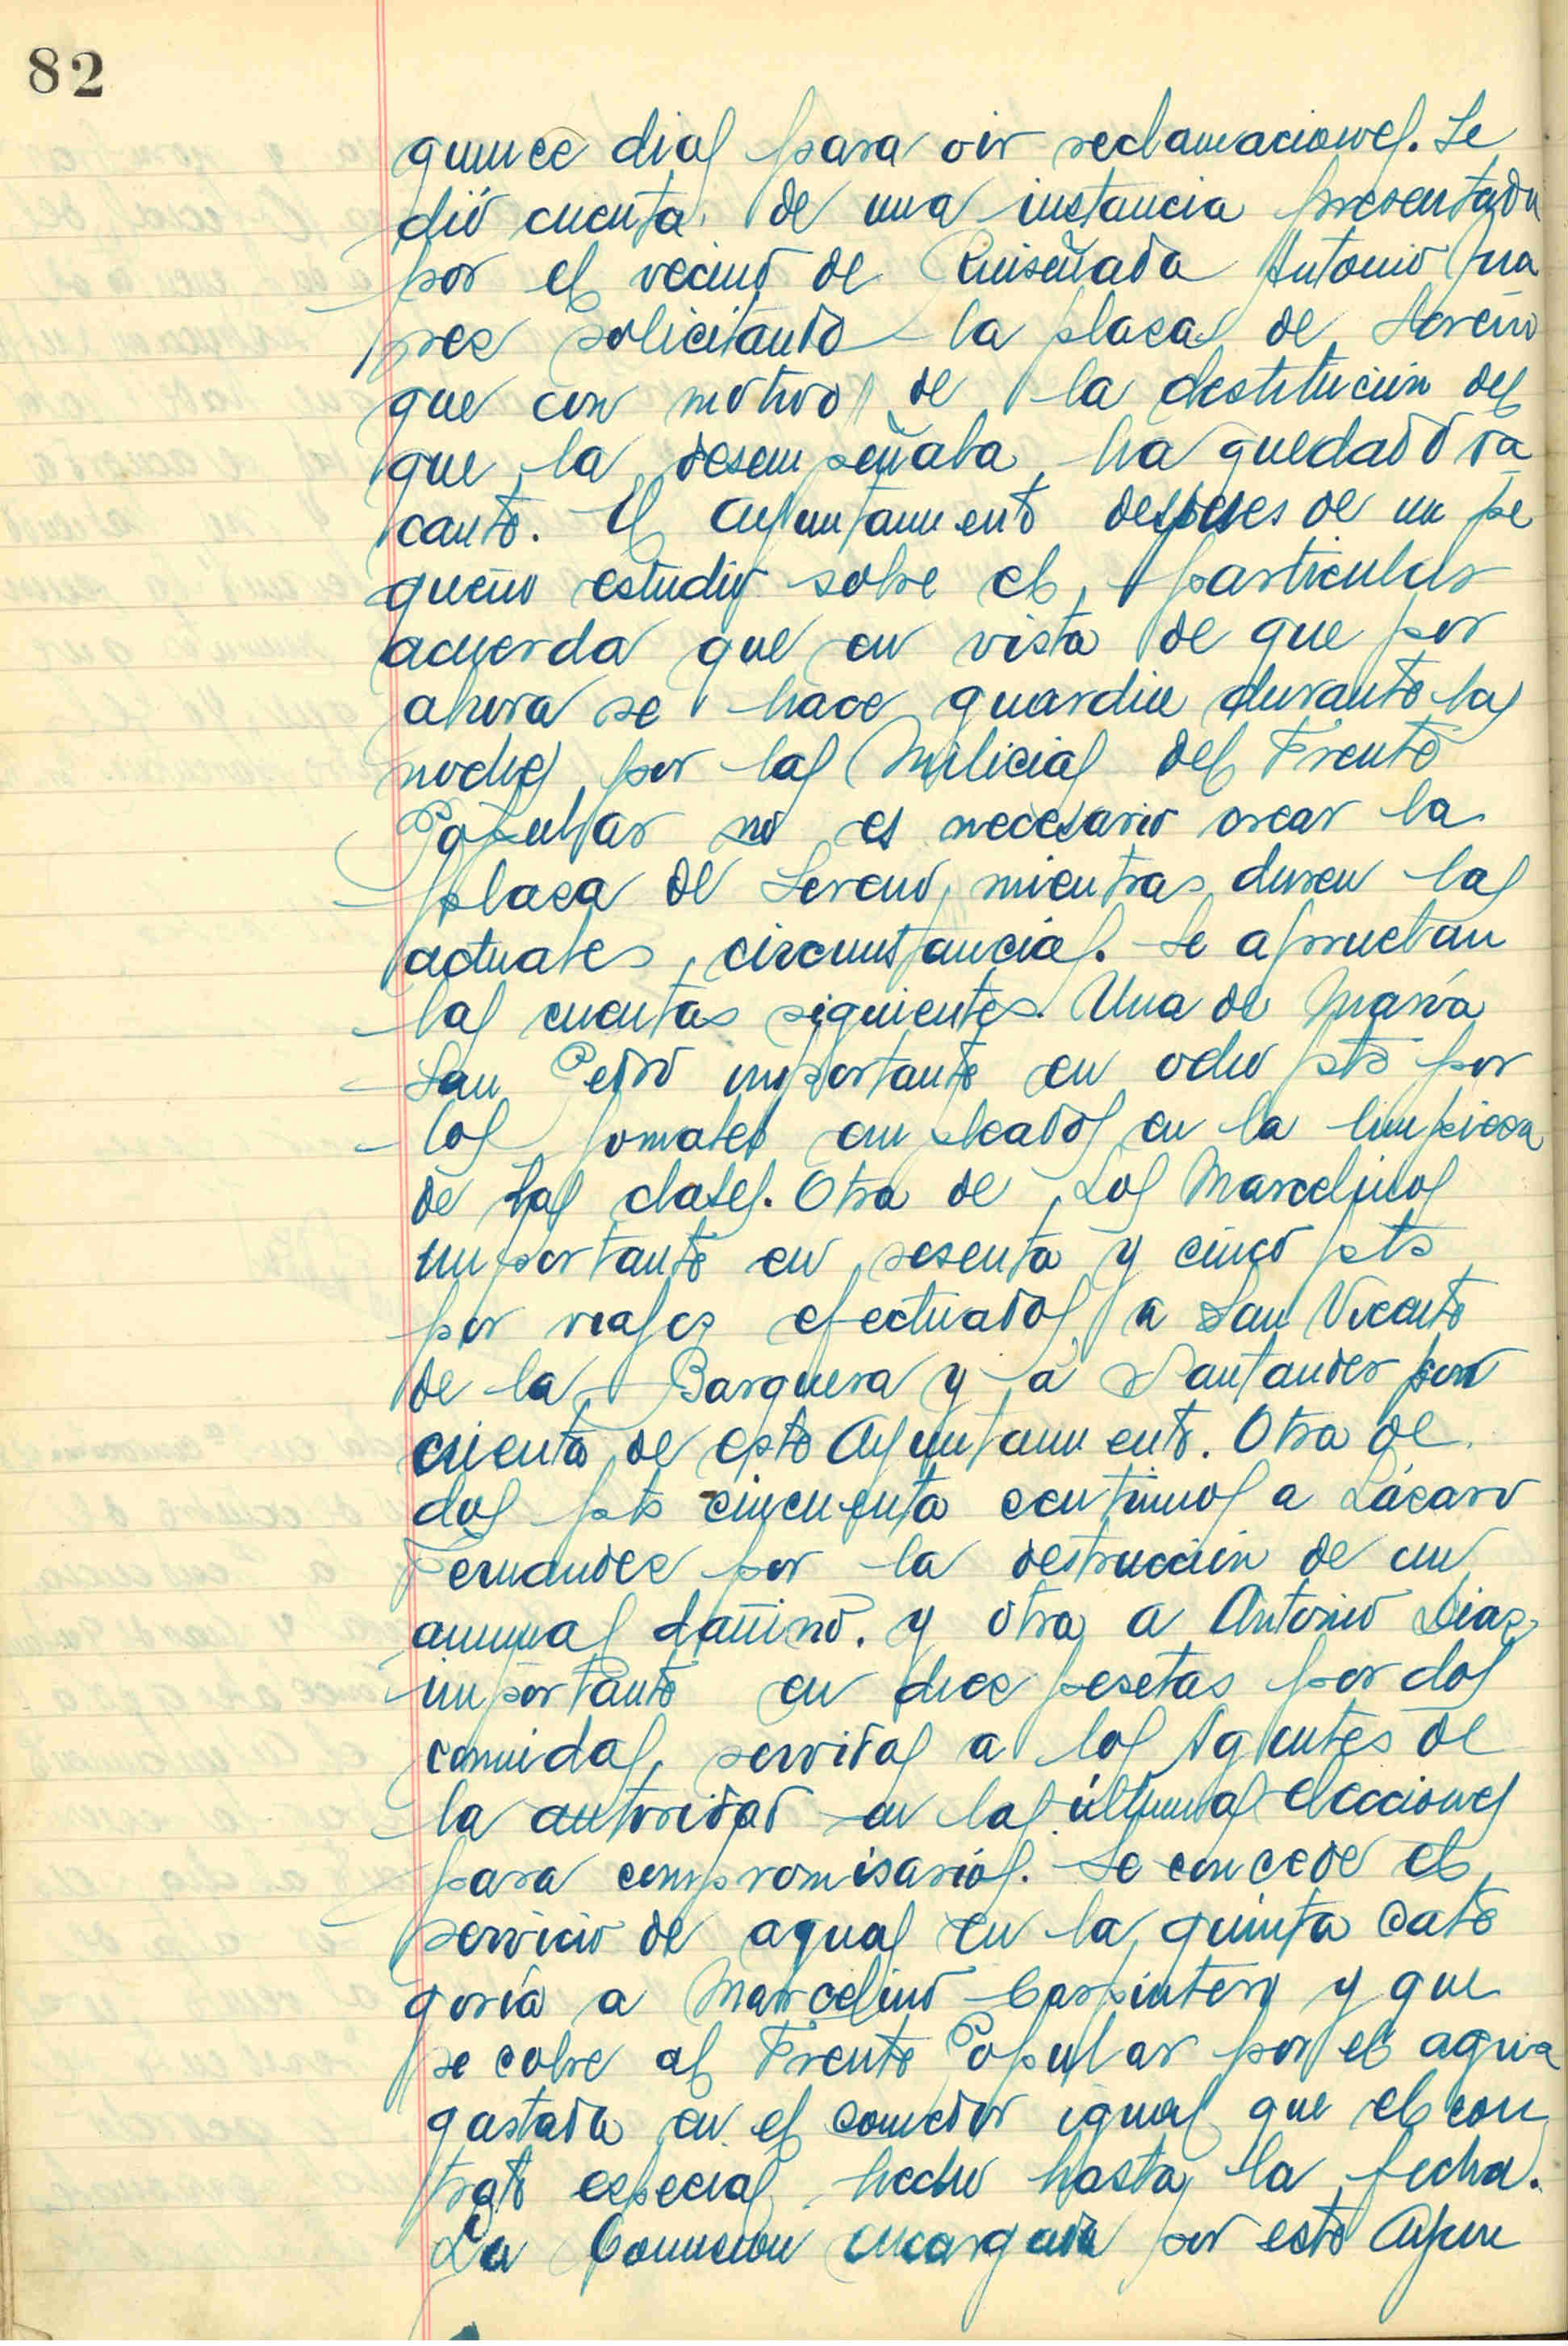 82
quince dias para oir reclamaciones. Se
dió cuenta de una instancia presentada
por el vecino de Ruiseñada Antonio
solicitando la plaza de Sereno
que con motivo de la destitución del
que la desempeñaba, ha quedado va
cante. El Ayuntamiento despues de un pe
queño estudio sobre el particular
acuerda que en vista de que por
ahora se hace guardia durante la
noche por las Milicias del Frente
Popular no es necesario crear la
plaza de Sereno, mientras duren las
actuales circunstancias. Se aprueban
las cuentas siguientes. Una de María
San Pedro importante en ocho pts por
los jornales empleados en la limpieza
de las clases. Otra de Los Marcelinos
importante en sesenta y cinco pts
por viajes efectuados a San Vicente
de la Barquera y a Santander por
cuenta de este Ayuntamiento. Otra de
dos pts cincuenta centimos a Lázaro
Fernandez por la destrucción de un
animal dañino. y otra a Antonio Diaz
importante en diez pesetas por dos
comidas servidas a los Agentes de
la autoridad en las últimas elecciones
para compromisarios. Se concede el
servicio de aguas en la quinta cate
goría a Marcelino Carpintero y que
se cobre al Frente Popular por el agua
gastada en el comedor igual que el con
trato especial hecho hasta la fecha.
La Comision encargada por este Ayun